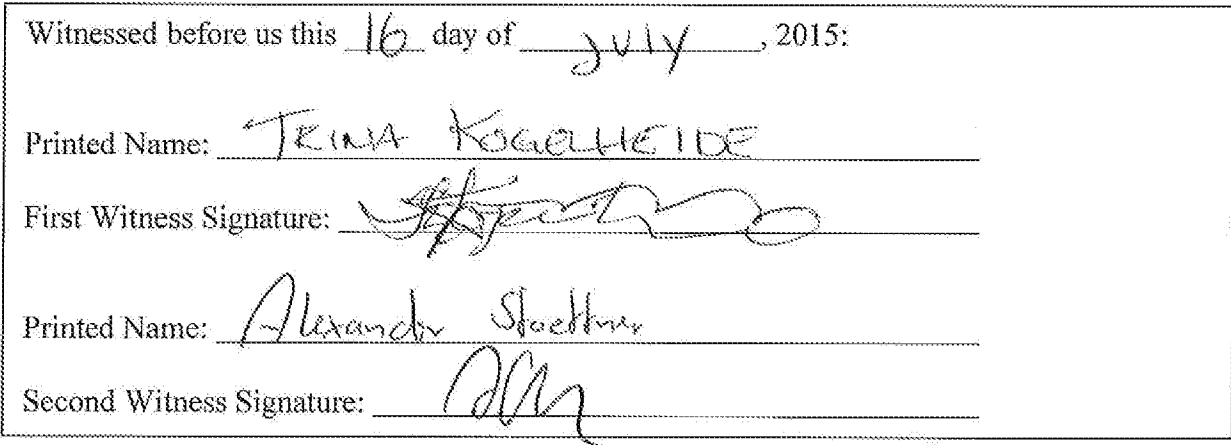 Witnessed before us this 16 day of July, 2015:
Printed Name: TRINA KOGELHEIDE
First Witness Signature:
Printed Name: Alexander Stoettner
Second Witness Signature: